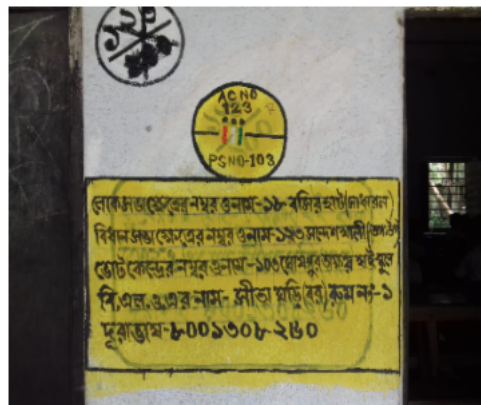 ১২৮
AC NO
123
PS NO-103
লোকসভা ক্ষেত্রের নম্বর ও নাম-১৮-বসিরহাট (সাধারন)
বিধানসভা ক্ষেত্রের নম্বর ও নাম-১২৩ সন্দেশখালী
ভোট কেন্দ্রের নম্বর ও নাম-১০৩ হাই স্কুল
বি,এল,ও,এর নাম- সীতা মুন্ডি (বর) রুম নং-১
দূরাভাষ-৮০০১৩০৮-২৪০